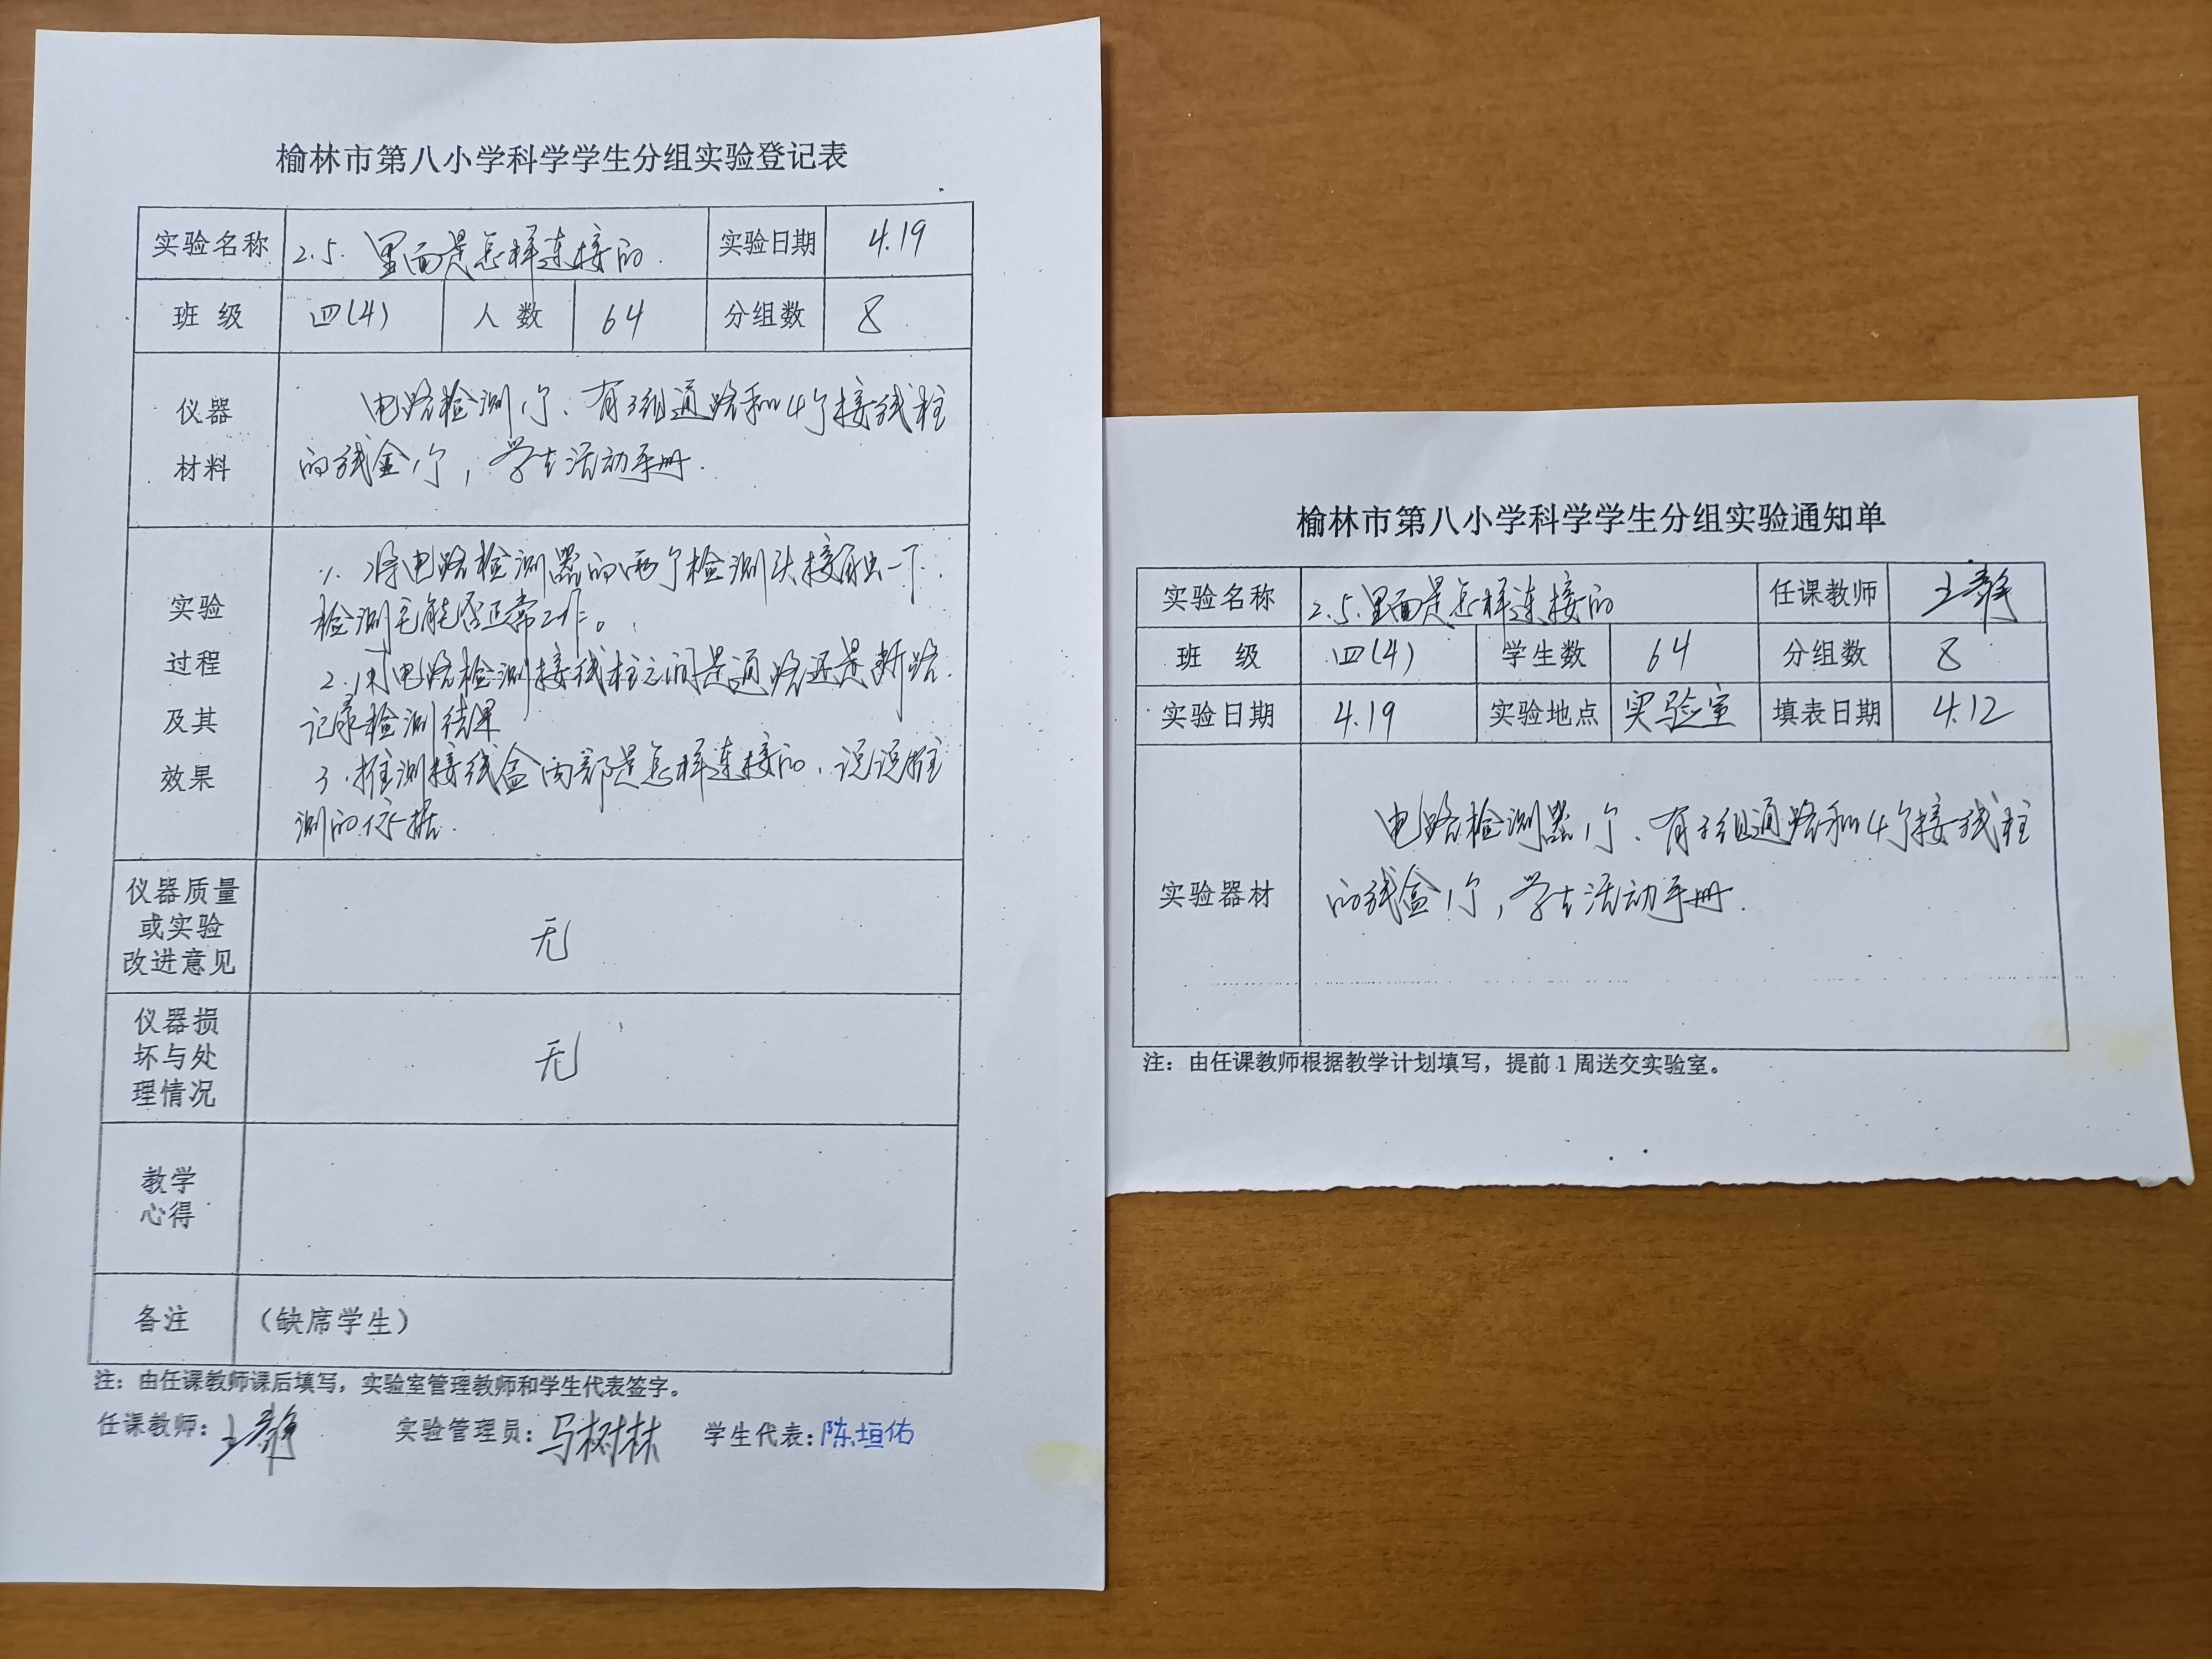 榆林市第八小学科学学生分组实验登记表
实验名称 2.5. 里面是怎样连接的. 实验日期 4.19
班 级 四(4) 人 数 64 分组数 8
仪器
材料
电路检测1个、有3组通路和4个接线柱
的线盒1个,学生活动手册.
实验
过程
及其
效果
1. 将电路检测器的两个检测头接触一下.
检测它能否正常工作。
2.用电路检测接线柱之间是通路还是断路.
记录检测结果
3.推测接线盒内部是怎样连接的.说说推
测的依据.
仪器质量
或实验
改进意见
无
仪器损
坏与处
理情况
无
教学
心得
备注 (缺席学生)
注:由任课教师课后填写,实验室管理教师和学生代表签字。
任课教师:王静 实验管理员:马树林 学生代表:陈垣佑
榆林市第八小学科学学生分组实验通知单
实验名称 2.5.里面是怎样连接的 任课教师 王静
班 级 四(4) 学生数 64 分组数 8
实验日期 4.19 实验地点 实验室 填表日期 4.12
实验器材
电路检测器1个、有3组通路和4个接线柱
的线盒1个,学生活动手册.
注:由任课教师根据教学计划填写,提前1周送交实验室。